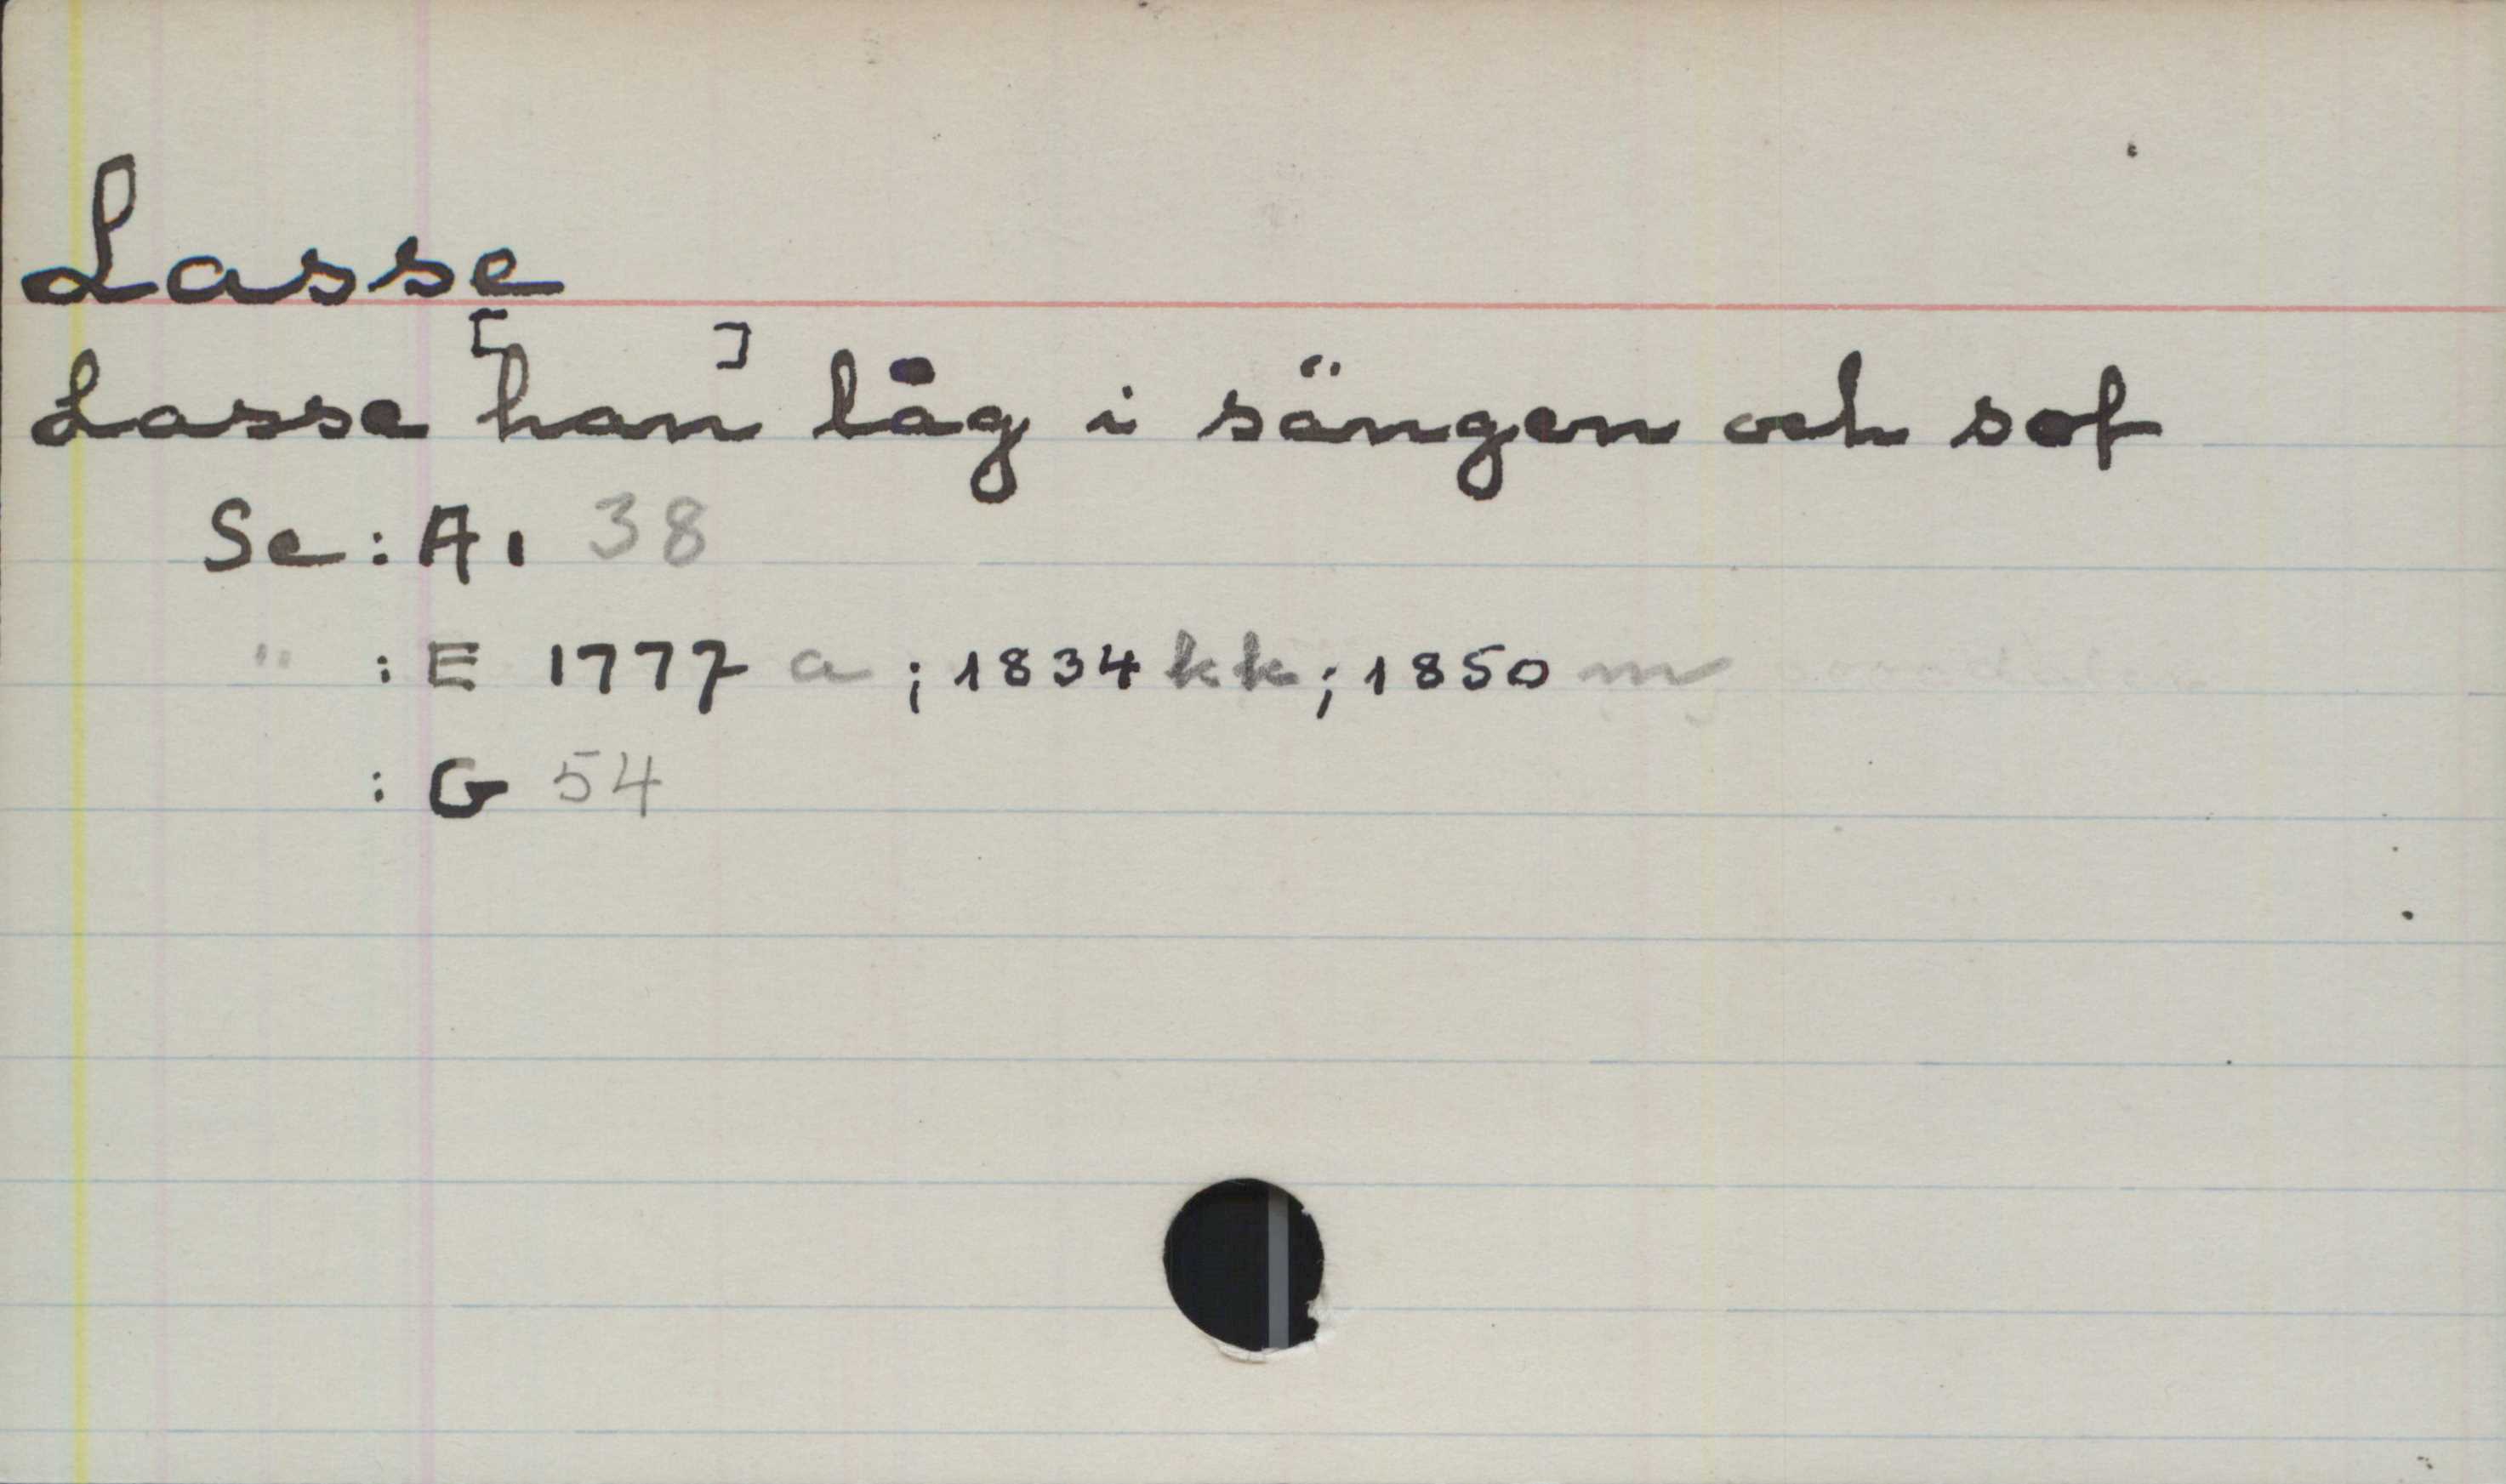 Lasse
Lasse [han] låg i sängen och sof
Se: A1 38
" : E 1777 a ; 1834 kk ; 1850 m
: G 54